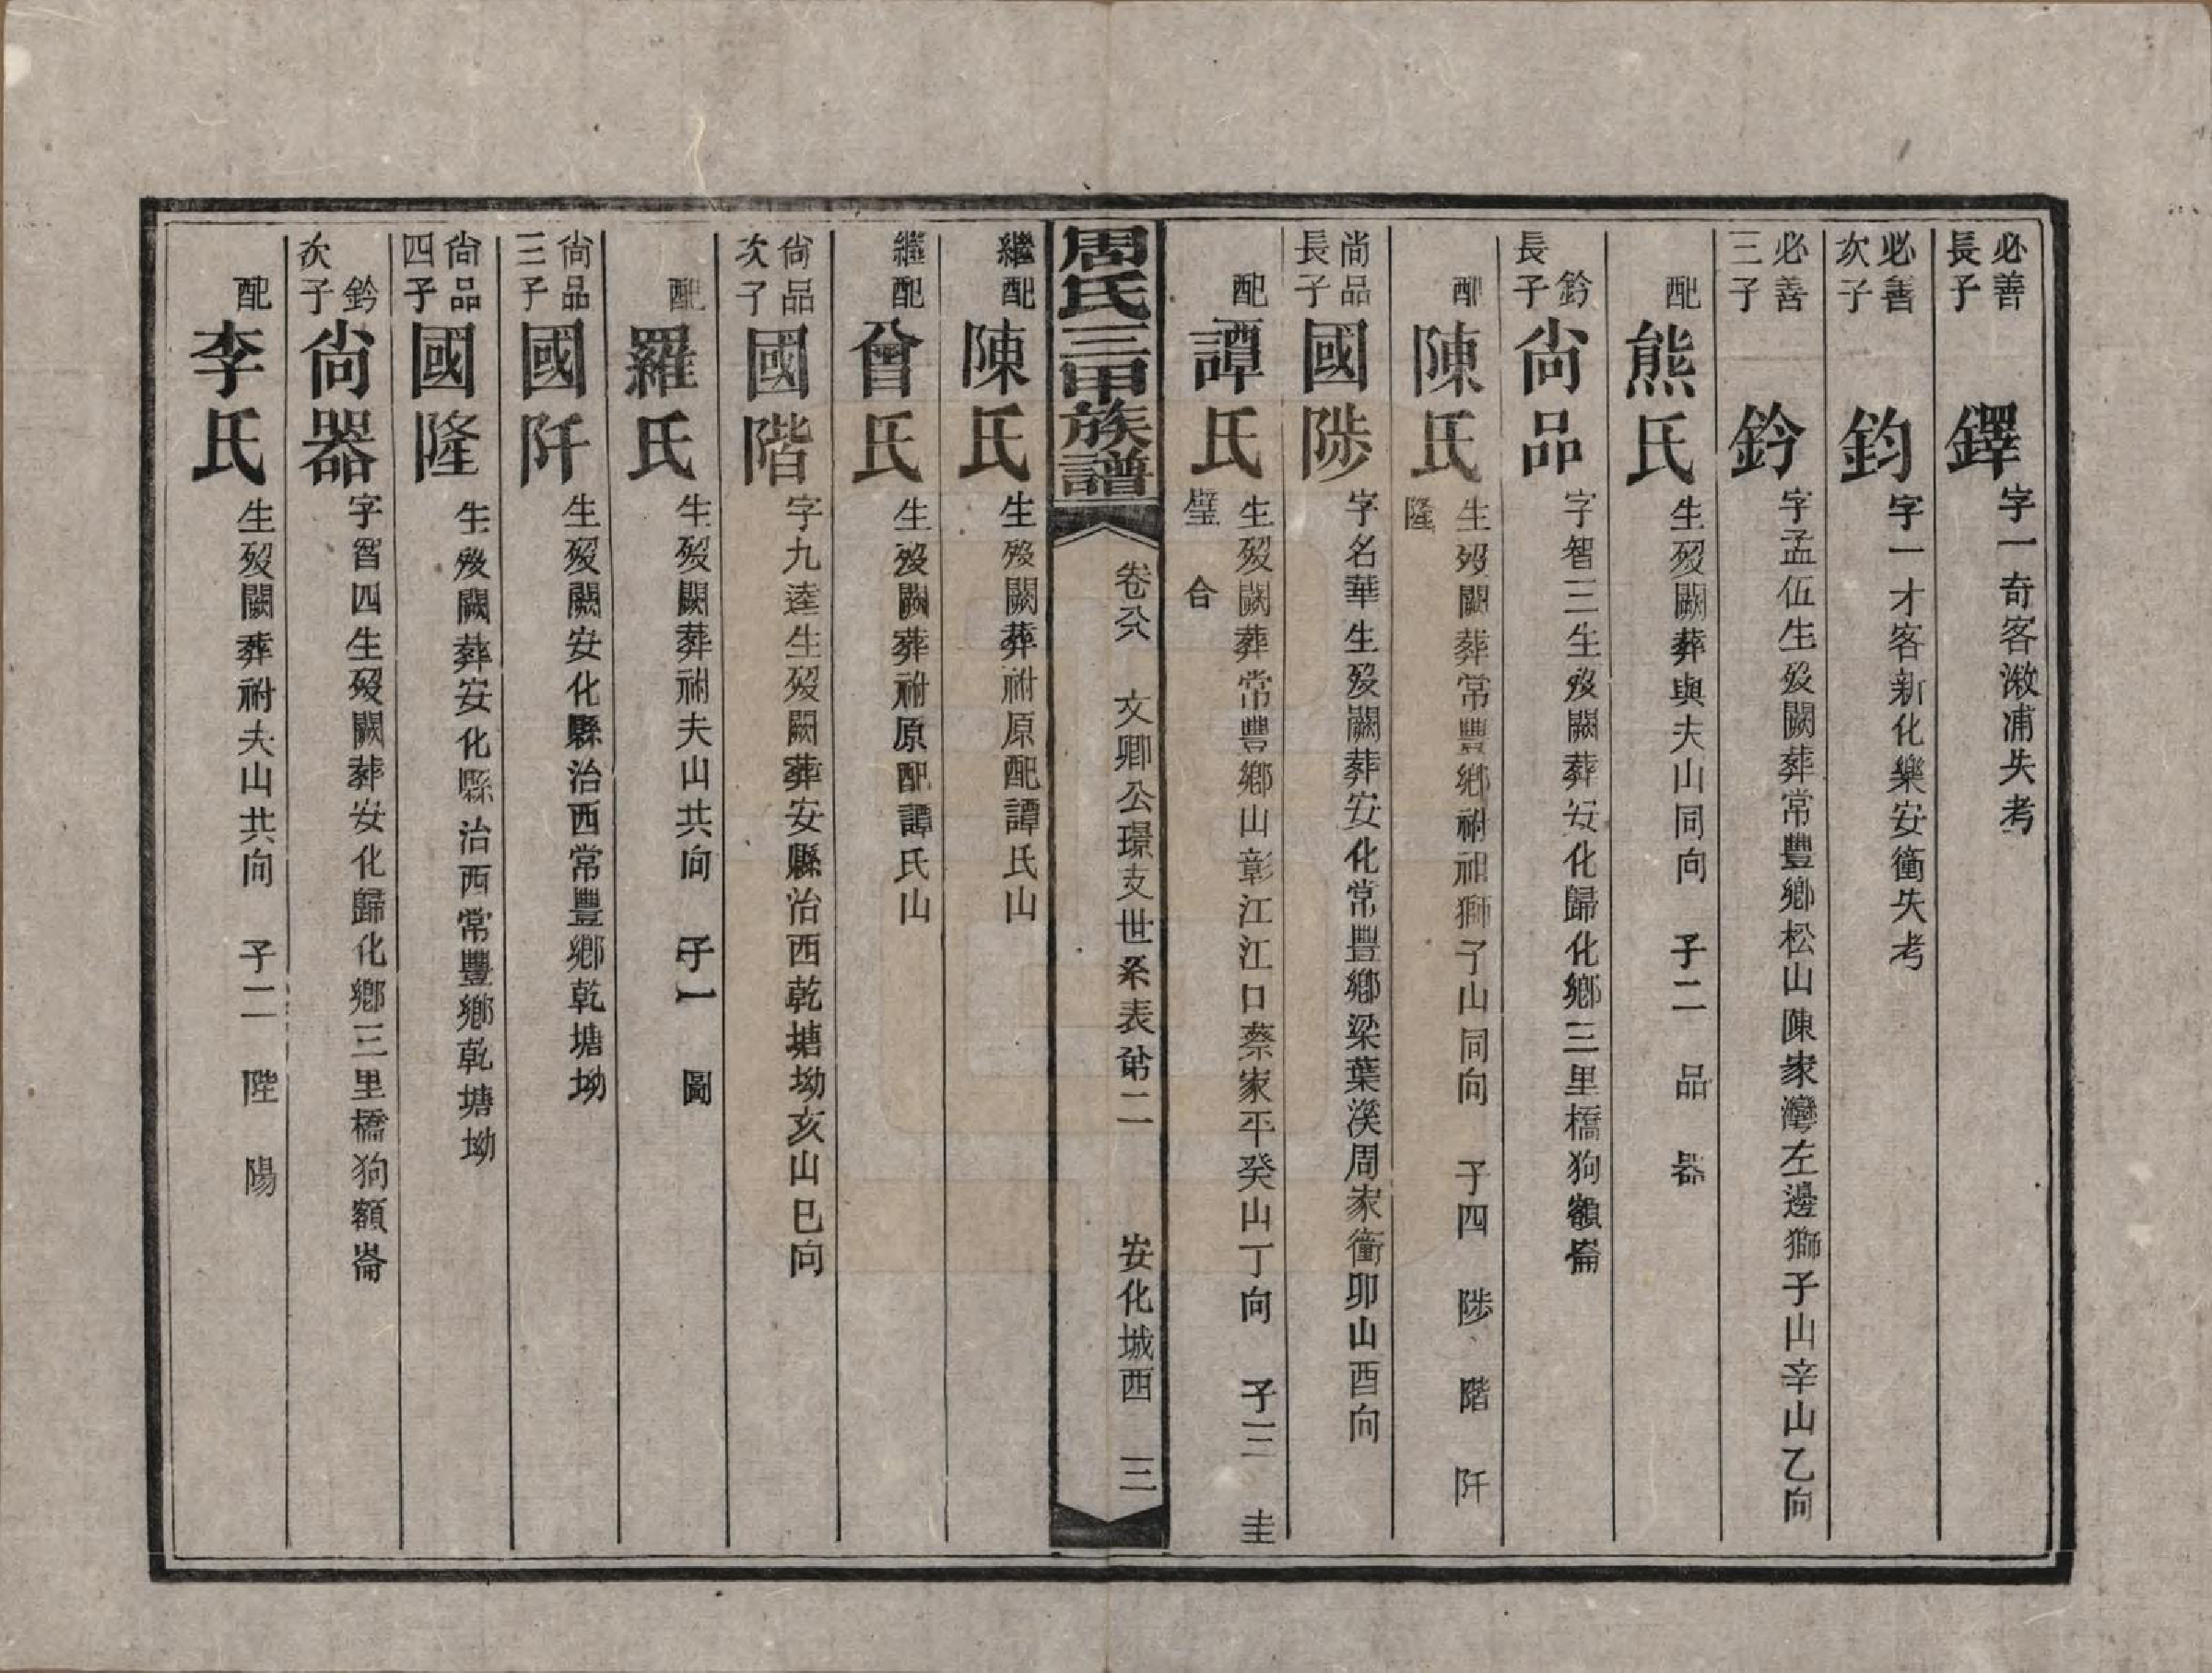 必善長子 鐸 字一奇客溆浦失考
必善次子 鈞 字一才客新化樂安衝失考
必善三子 鈐 字孟伍生歿闕葬常豐鄉松山陳家灣左邊獅子山辛山乙向
配 熊氏 生歿闕葬與夫山同向 子二 品 器
鈐長子 尙品 字智三生歿闕葬安化歸化鄉三里橋狗額崙
配 陳氏 生歿闕葬常豐鄉祔祖獅子山同向 子四 陟 階 阡
隆
尙品長子 國陟 字名華生歿闕葬安化常豐鄉梁葉溪周家衝卯山酉向
配 譚氏 生歿闕葬常豐鄉山彰江江口蔡家平癸山丁向 子三 圭
璧 合
周氏三甲族譜 卷八 文卿公璟支世系表第二 安化城西 三
繼配 陳氏 生歿闕葬祔原配譚氏山
繼配 曾氏 生歿闕葬祔原配譚氏山
尙品次子 國階 字九逵生歿闕葬安縣治西乾塘坳亥山巳向
配 羅氏 生歿闕葬祔夫山共向 子一 圖
尙品三子 國阡 生歿闕安化縣治西常豐鄉乾塘坳
尙品四子 國隆 生歿闕葬安化縣治西常豐鄉乾塘坳
鈐次子 尙器 字智四生歿闕葬安化歸化鄉三里橋狗額崙
配 李氏 生歿闕葬祔夫山共向 子二 陞 陽